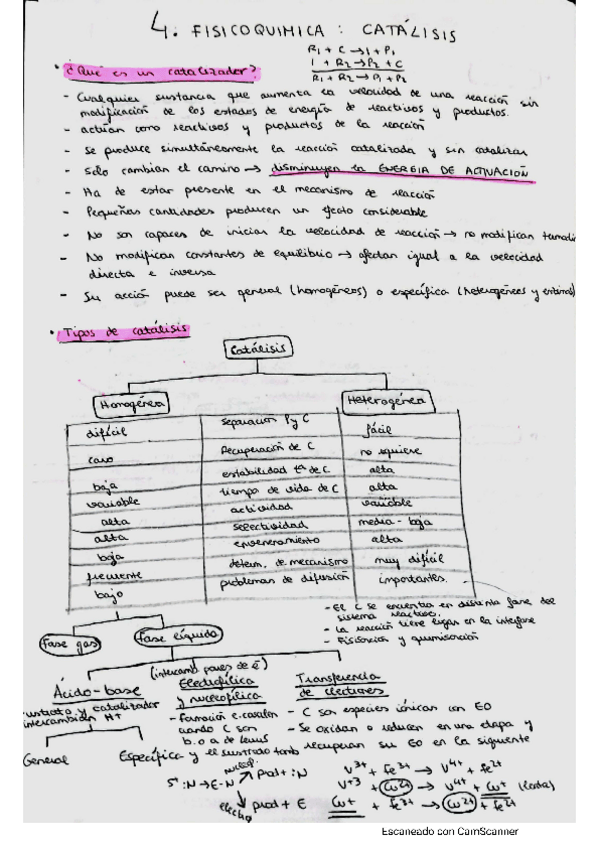 4. FISICOQUIMICA: CATÁLISIS
R1 + C → I + P1
I + R2 → P2 + C
R1 + R2 → P1 + P2
• ¿Qué es un catalizador?
- Cualquier sustancia que aumenta la velocidad de una reacción sin
modificación de los estados de energía de reactivos y productos.
- actúan como reactivos y productos de la reacción
- Se produce simultáneamente la reacción catalizada y sin catalizar
- Solo cambian el camino → disminuyen la ENERGIA DE ACTIVACIÓN
- Ha de estar presente en el mecanismo de reacción
- Pequeñas cantidades producen un efecto considerable
- No son capaces de iniciar la velocidad de reacción → no modifican
- No modifican constantes de equilibrio → afectan igual a la velocidad
directa e inversa
- Su acción puede ser general (homogéneos) o específica (heterogéneos y
• Tipos de catálisis
Catálisis
Homogénea Heterogénea
difícil separación P y C fácil
caro Recuperación de C no requiere
baja estabilidad tª de C alta
variable tiempo de vida de C alta
alta actividad variable
alta selectividad media-baja
baja envenenamiento alta
frecuente determ. de mecanismo muy difícil
bajo problemas de difusión importantes
- El C se encuentra en distinta fase del
sistema reactivo.
- La reacción tiene lugar en la interfase
- Fisisorción y quimisorción
Fase gas Fase líquida
(intercamb pares de e-)
Ácido-base Electrofílica y nucleofílica Transferencia de electrones
sustrato y catalizador
intercambian H+
General Específica
- Formación e. covalen
cuando C son
b. o a. de Lewis
y el sustrato tamb
- C son especies iónicas con EO
- Se oxidan o reducen en una etapa y
recuperan su EO en la siguiente
nucleof. prod + :N
S+ :N → E-N
electro prod + E
V3+ + Fe3+ → V4+ + Fe2+
V+3 + Cu2+ → V4+ + Cu+ (lenta)
Cu+ + Fe3+ → Cu2+ + Fe2+
Escaneado con CamScanner